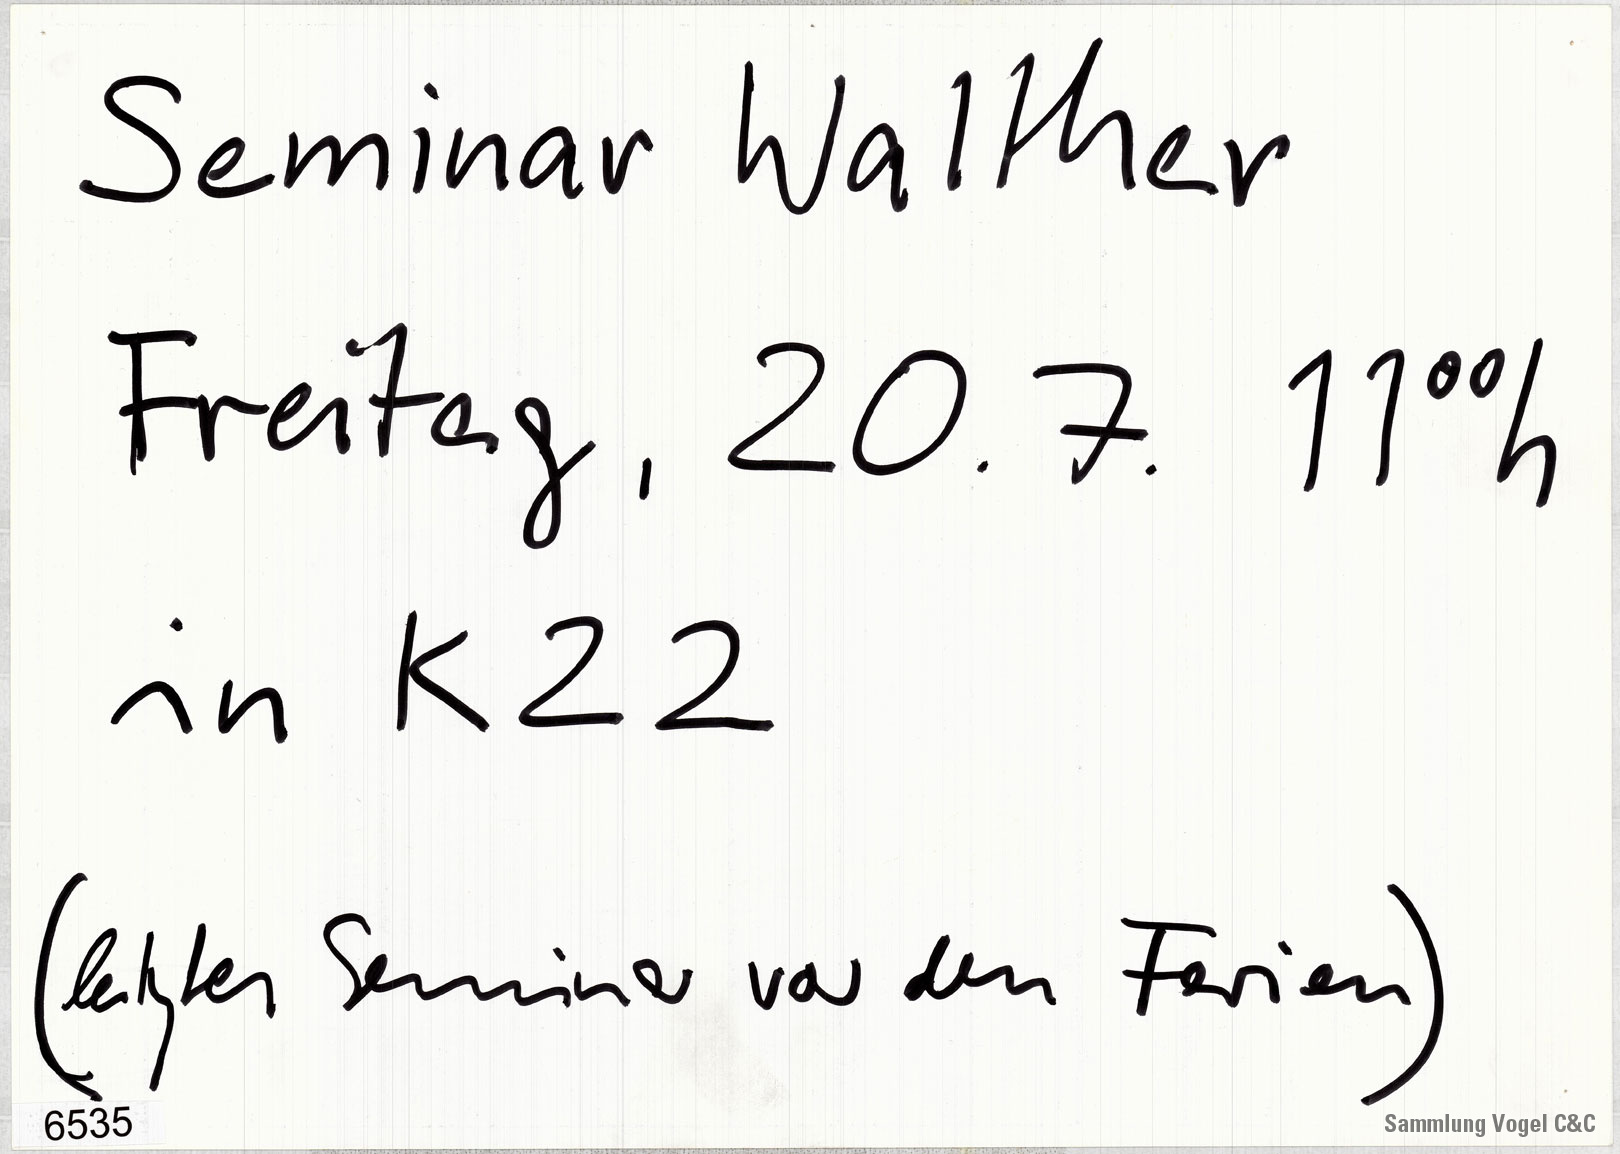 Seminar Walther
Freitag, 20.7. 11ººh
in K22
(letzten Seminar vor den Ferien)
6535
Sammlung Vogel C&C